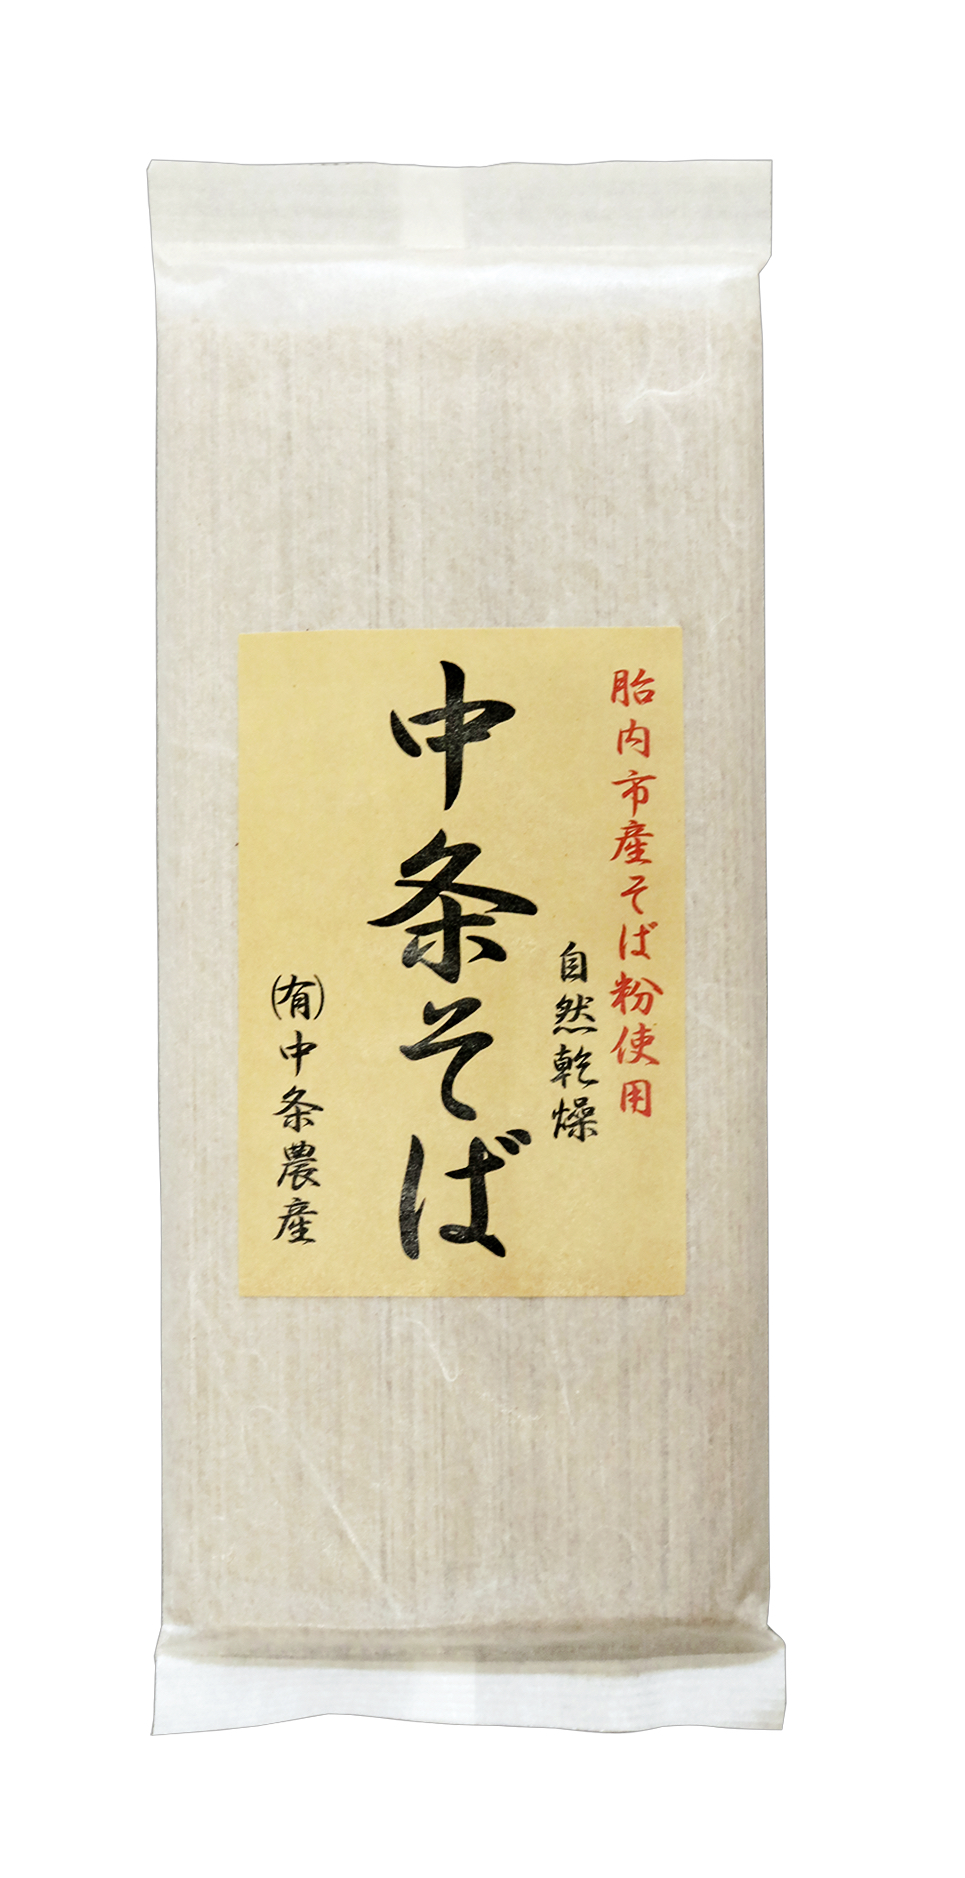 胎内市産そば粉使用
自然乾燥
中条そば
(有)中条農産